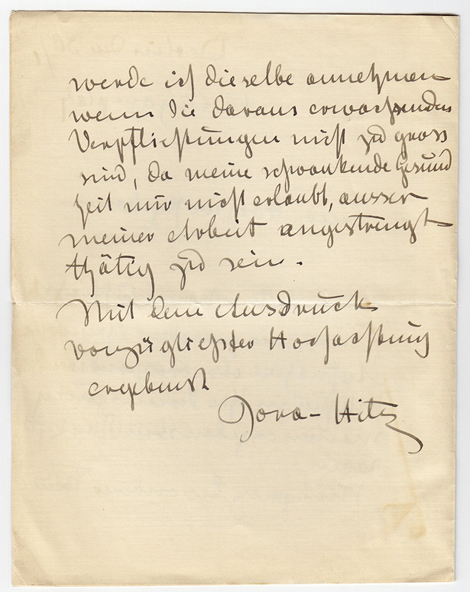 werde ich dieselbe annehmen
wenn die daraus erwachsenden
Verpflichtungen nicht zu gross
sind, da meine schwankende Gesund
heit mir nicht erlaubt, ausser
meiner Arbeit angestrengt
thätig zu sein.
Mit dem Ausdruck
vorzüglichster Hochachtung
ergebenst
Dora-Hitz